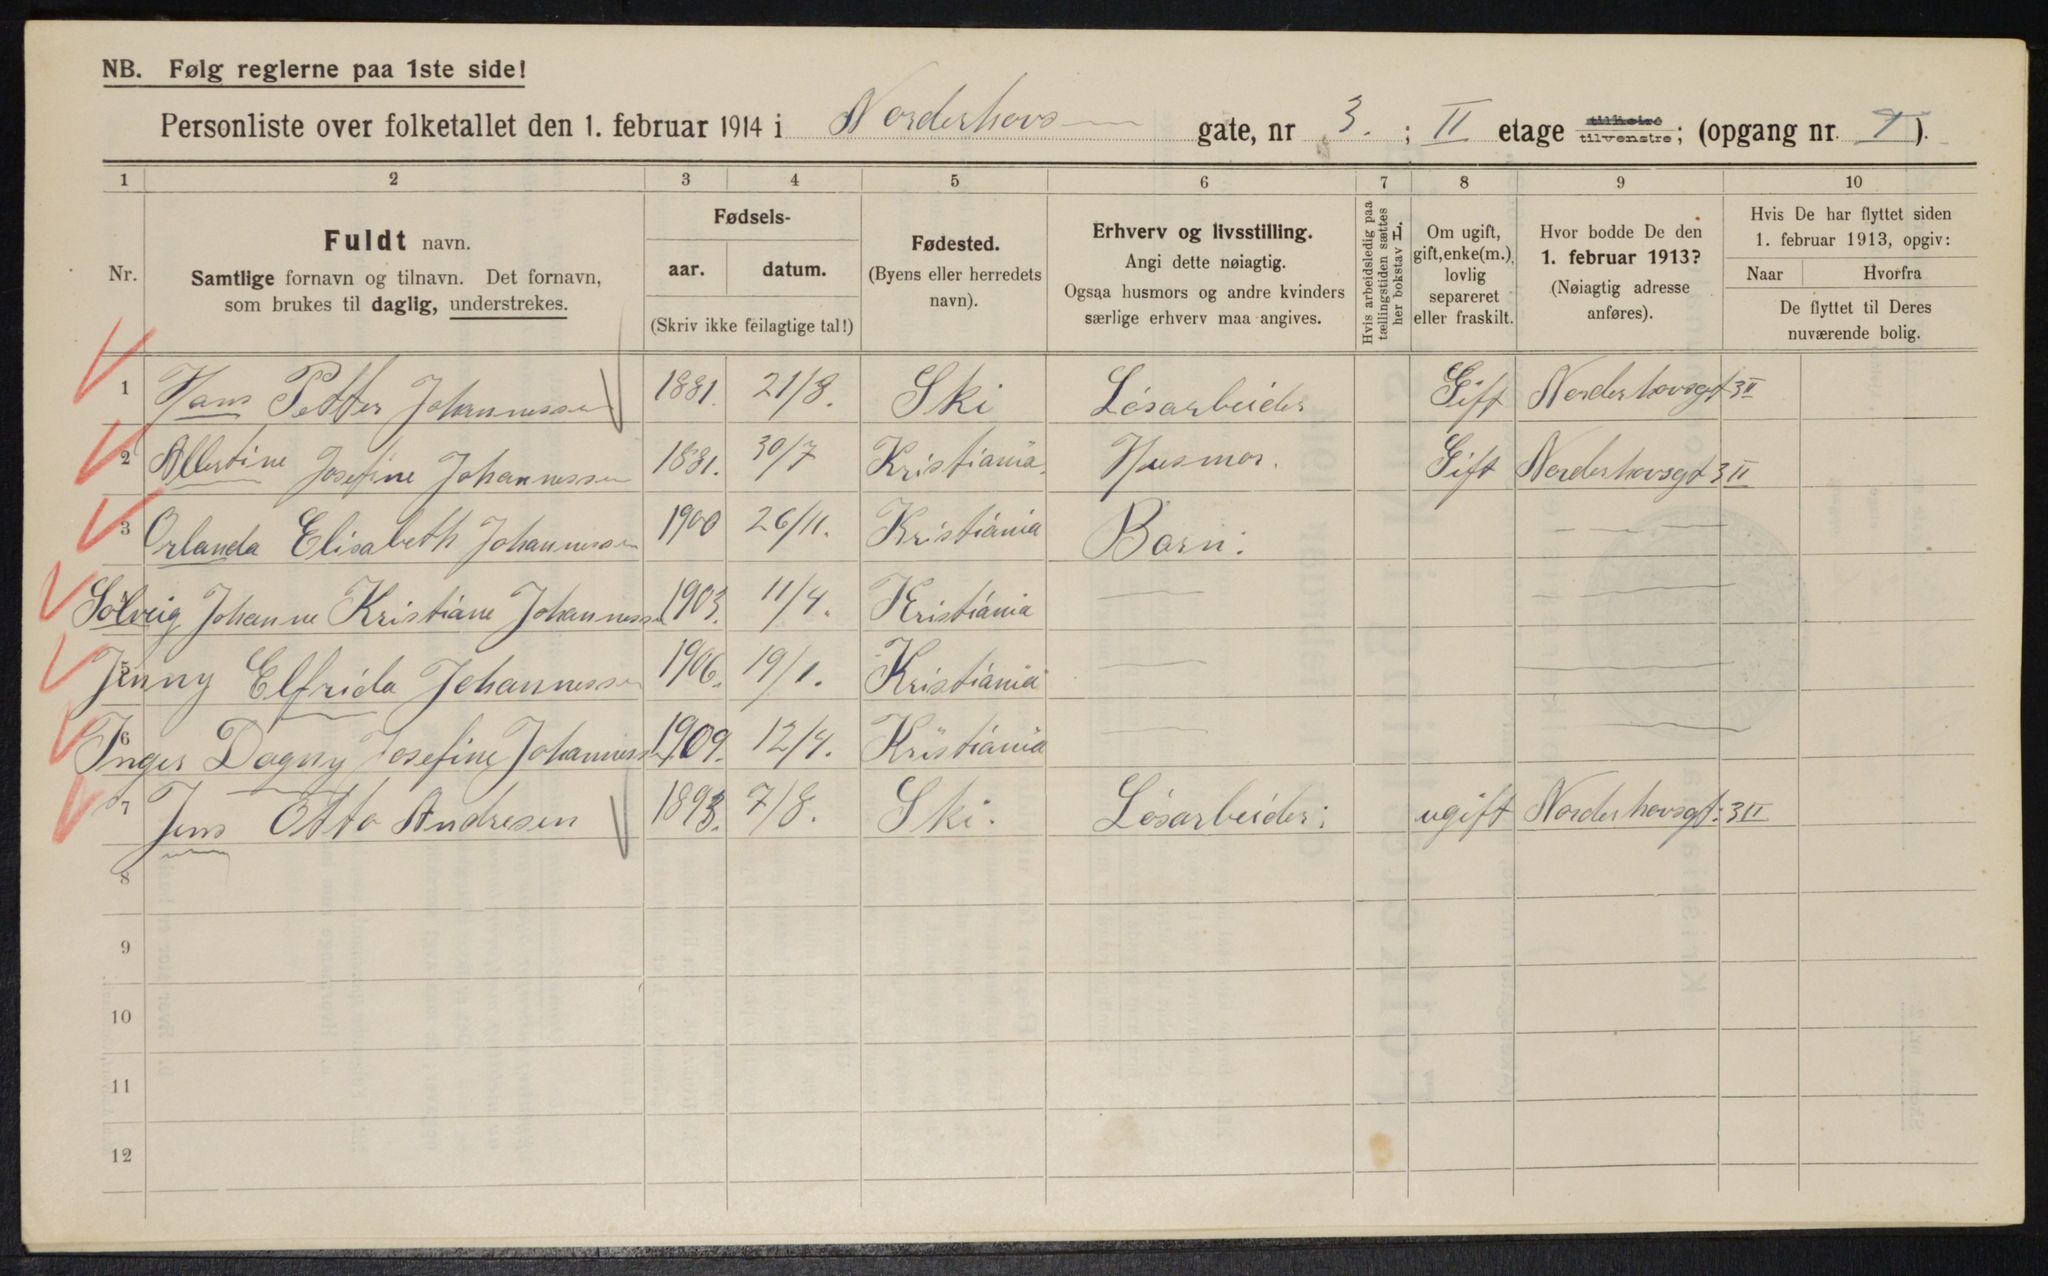 NB. Følg reglerne paa 1ste side!
Personliste over folketallet den 1. februar 1914 i Norderhovs gate, nr 3. ; II etage tilhøire tilvenstre; (opgang nr. 1).
1 2 3 4 5 6 7 8 9 10
Nr.
Fuldt navn.
Samtlige fornavn og tilnavn. Det fornavn,
som brukes til daglig, understrekes.
Fødsels-
aar. datum.
(Skriv ikke feilagtige tal!)
Fødested.
(Byens eller herredets
navn).
Erhverv og livsstilling.
Angi dette nøiagtig.
Ogsaa husmors og andre kvinders
særlige erhverv maa angives.
Hvis arbeidsledig paa
tællingstiden sættes
her bokstav L.
Om ugift,
gift, enke(m.),
lovlig
separeret
eller fraskilt.
Hvor bodde De den
1. februar 1913?
(Nøiagtig adresse
anføres).
Hvis De har flyttet siden
1. februar 1913, opgiv:
Naar Hvorfra
De flyttet til Deres
nuværende bolig.
1 Hans Petter Johannessen 1881. 21/8. Ski Løsarbeider Gift Norderhovsgt 3 II
2 Albertine Josefine Johannessen 1881. 30/7 Kristiania. Husmor. Gift Norderhovsgt 3 II
3 Orlanda Elisabeth Johannessen 1900 26/11. Kristiania Barn. — — —
4 Solveig Johanne Kristiane Johannessen 1903. 11/4. Kristiania — — —
5 Jenny Elfrida Johannessen 1906. 19/1. Kristiania — — —
6 Inger Dagny Josefine Johannessen 1909. 12/4. Kristiania — — —
7 Jens Otto Andresen 1893. 7/8. Ski. Løsarbeider; ugift Norderhovsgt: 3 II
8
9
10
11
12